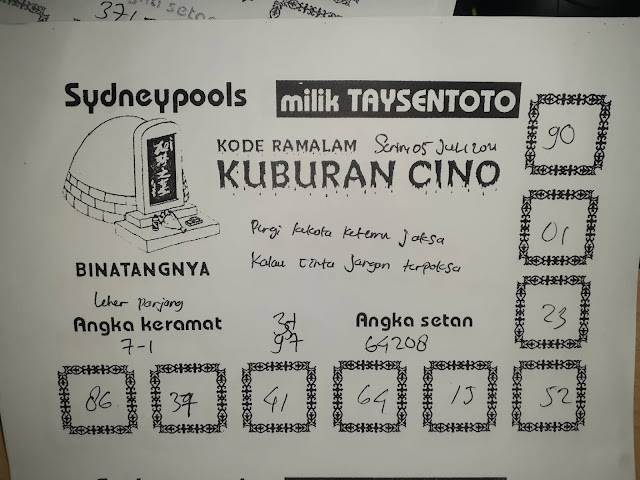 37-1
angka setan
Sydneypools
milik TAYSENTOTO
90
KODE RAMALAM Senin 05 Juli 2021
KUBURAN CINO
Pergi kekota ketemu jaksa
01
Kalau cinta jangan terpaksa
BINATANGNYA
Leher panjang
23
Angka keramat
Angka setan
7-1
97
64208
86
37
41
64
15
52
Sydneypools